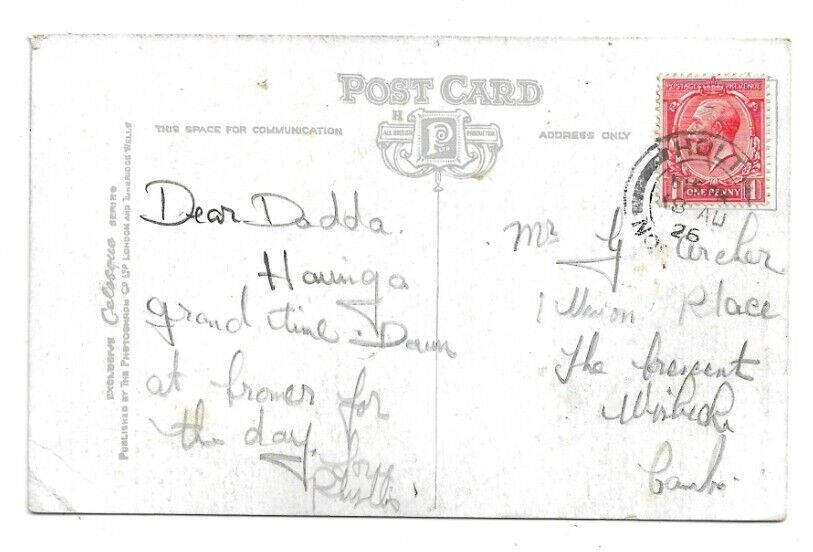 POST CARD
H
ALL BRITISH PRODUCTION
P
THIS SPACE FOR COMMUNICATION
ADDRESS ONLY
EXCLUSIVE Celesque SERIES
PUBLISHED BY THE PHOTOCHROM CO LTD LONDON AND TUNBRIDGE WELLS
POSTAGE REVENUE
ONE PENNY
HOLT
18 AU
26
Dear Dadda.
Having a
grand time Down
at Cromer for
the day.
Love
Phyllis
Mr G Archer
1 Union Place
The Crescent
Wisbech
Cambs.